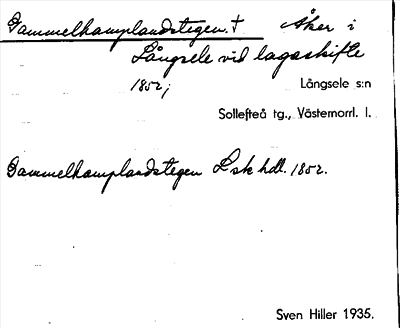 Gammelhamplandstegen. † Åker i
Långsele vid lagaskifte
1852;
Långsele s:n
Sollefteå tg., Västernorrl. l.
Gammelhamplandstegen Lsk hdl. 1852.
Sven Hiller 1935.